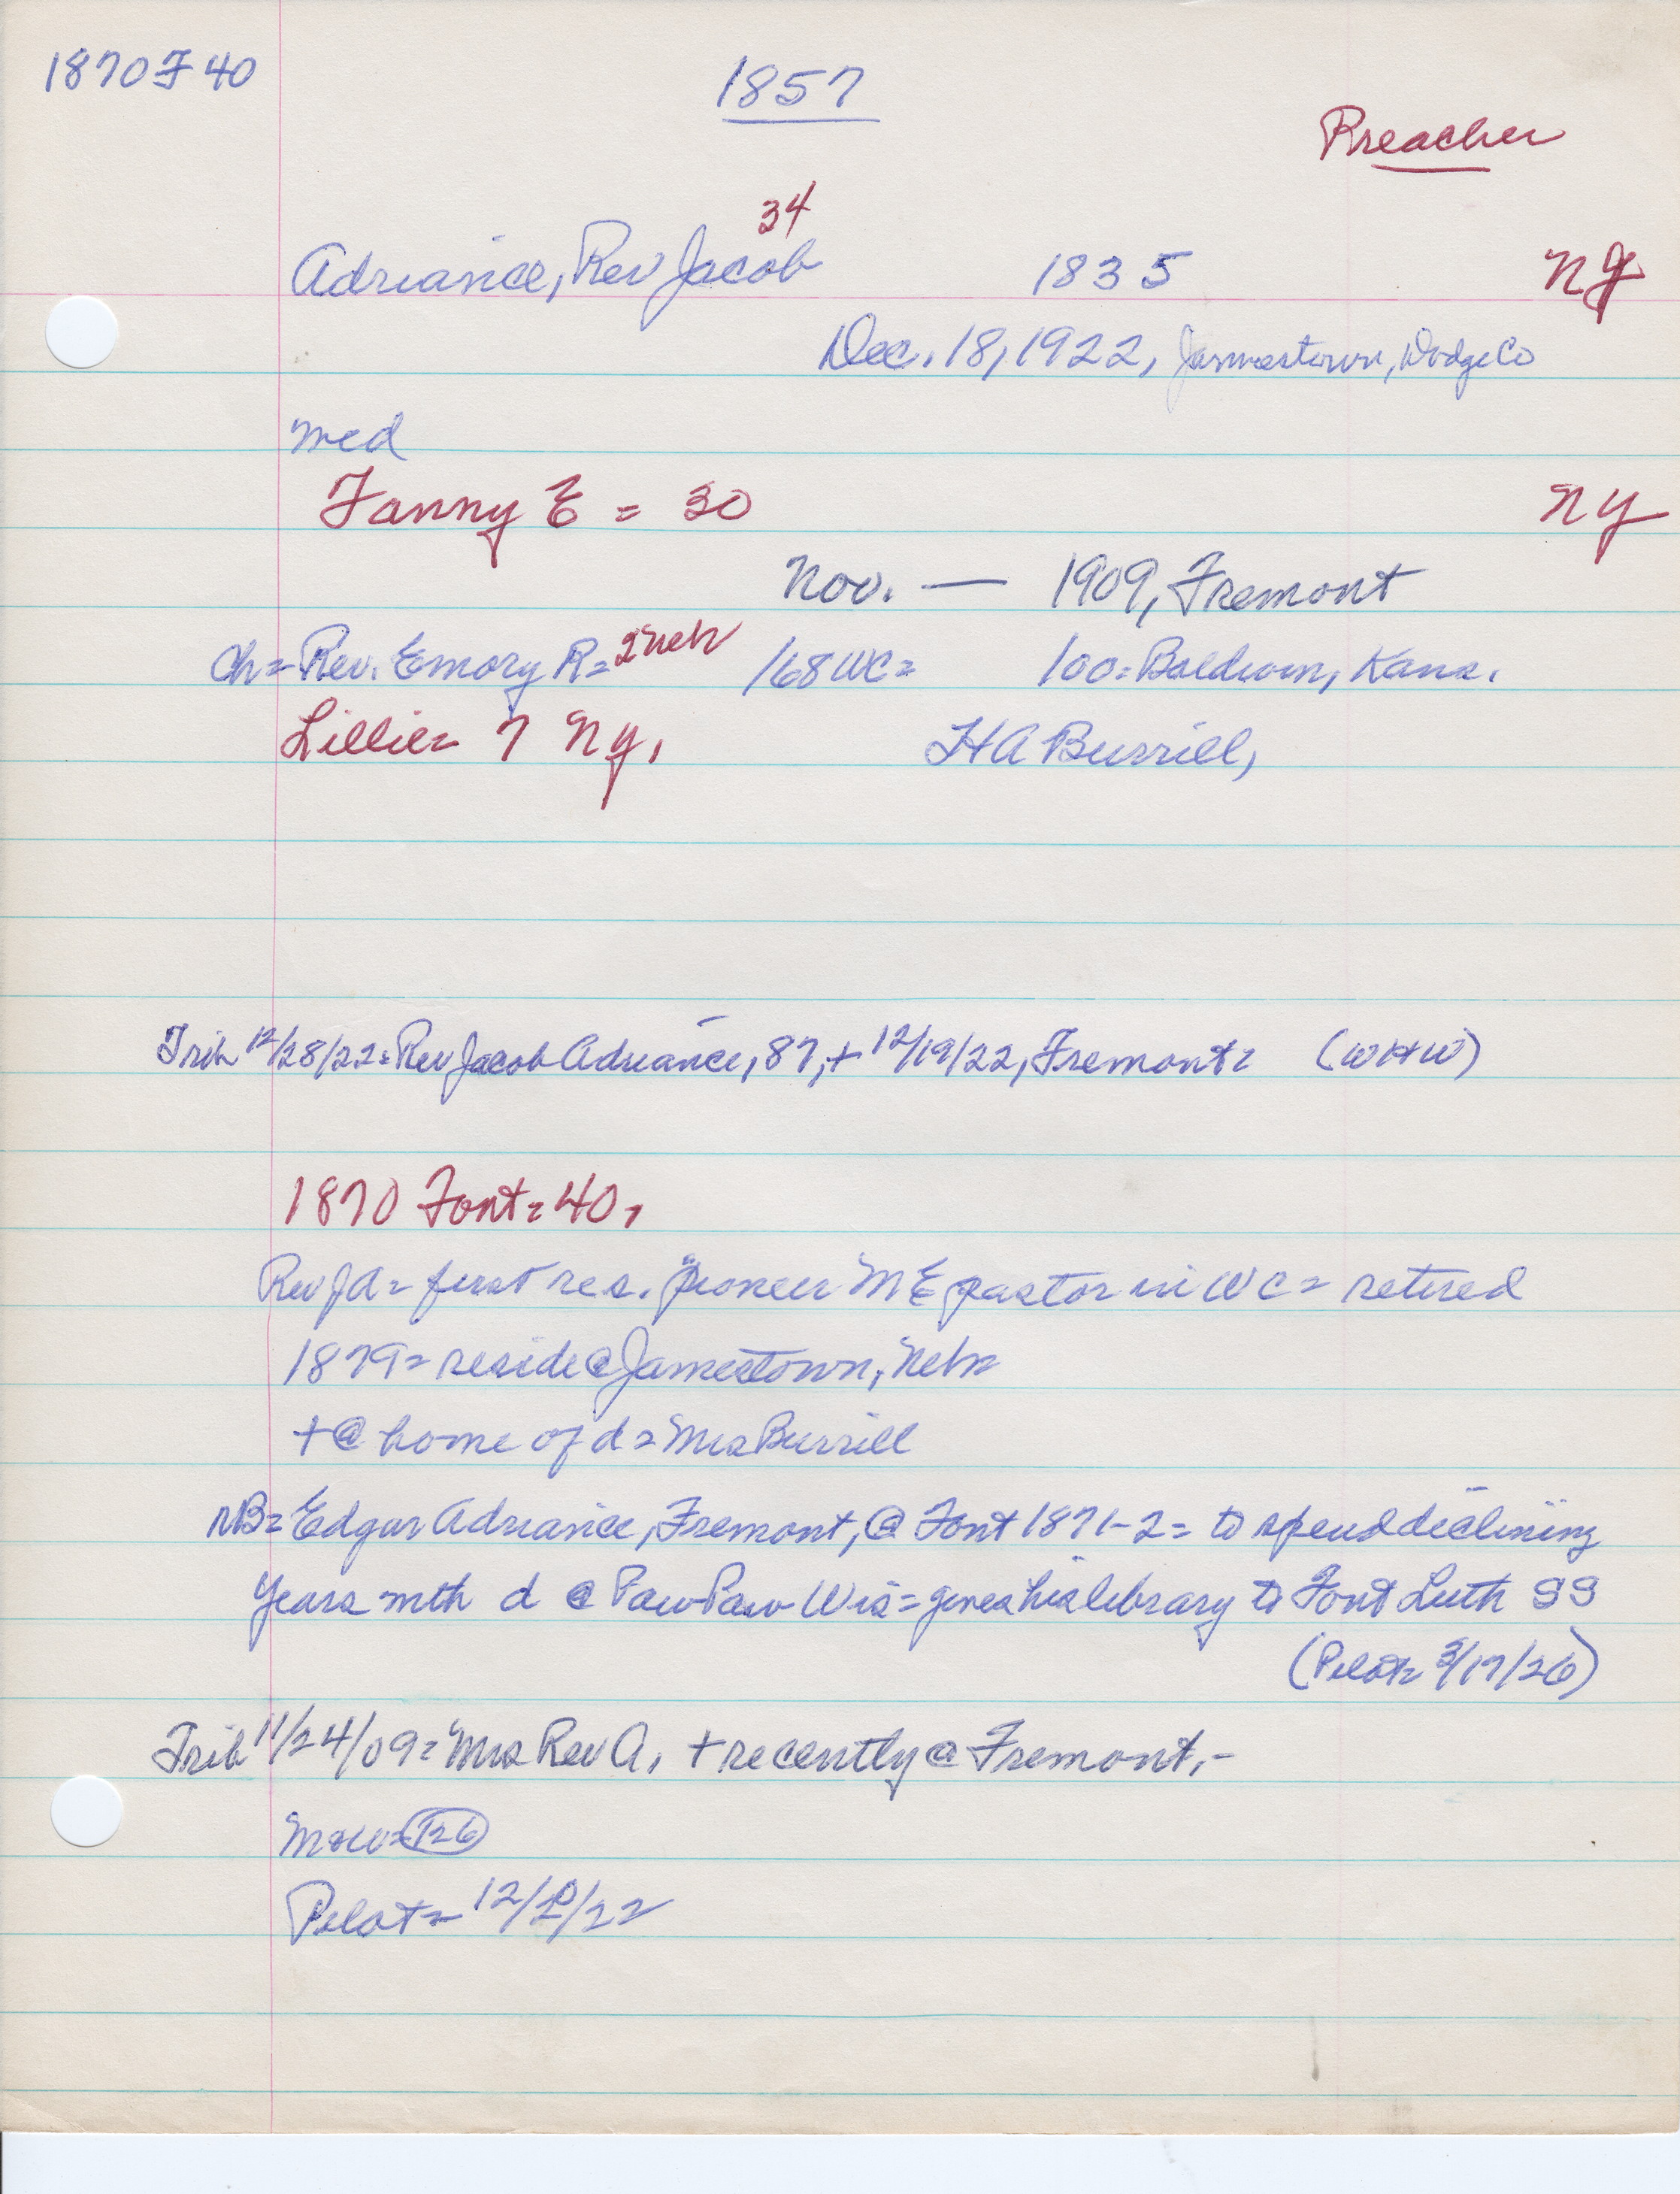 1870 F 40
1857
Preacher
34
Adriance, Rev Jacob 1835 NY
Dec. 18, 1922, Jamestown, Dodge Co
med
Fanny E = 30 NY
Nov. — 1909, Fremont
Ch= Rev. Emory R= 2 Neb /68 WC= 100= Baldwin, Kans.
Lillie= 7 NY, HA Burrill,
Trib 12/28/22= Rev Jacob Adriance, 87, + 12/19/22, Fremont= (WHW)
1870 Font= 40,
Rev JA= first res. pioneer ME pastor in WC= retired
1879= reside @ Jamestown, Nebr
+ @ home of d= Mrs Burrill
NB= Edgar Adriance, Fremont, @ Font 1871-2= to spend declining
years with d @ Paw Paw Wis= gives his library to Font Luth SS
(Pilot= 3/17/26)
Trib 11/24/09= Mrs Rev A, + recently @ Fremont.-
126
Pilot= 12/ /22